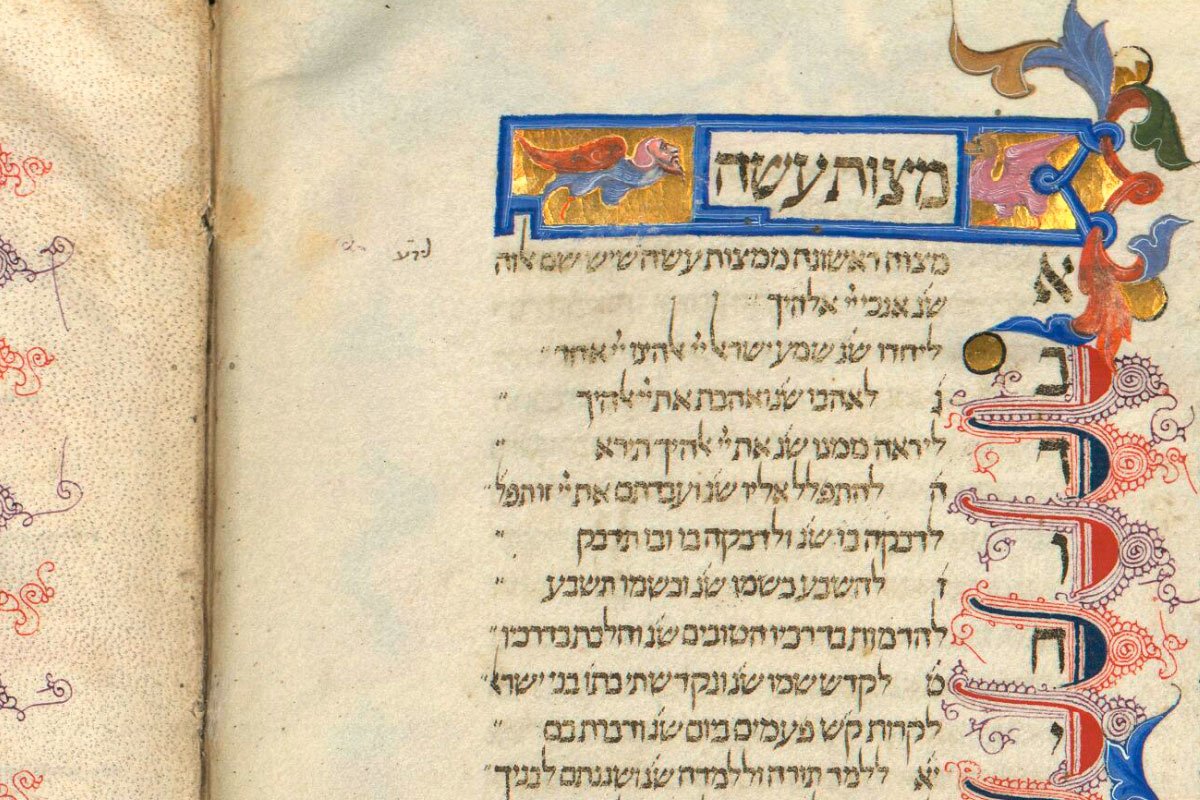 מצות עשה
א מצוה ראשונה ממצות עשה שיש שם אלוה
שנ׳ אנכי יי׳ אלהיך
ב ליחדו שנ׳ שמע ישראל יי׳ אלהינו יי׳ אחד
ג לאהבו שנ׳ ואהבת את יי׳ אלהיך
ד ליראה ממנו שנ׳ את יי׳ אלהיך תירא
ה להתפלל אליו שנ׳ ועבדתם את יי׳ זו תפל׳
ו לדבקה בו שנ׳ ולדבקה בו ובו תדבק
ז להשבע בשמו שנ׳ ובשמו תשבע
ח להדמות בדרכיו הטובים שנ׳ והלכת בדרכיו
ט לקדש שמו שנ׳ ונקדשתי בתו׳ בני ישר׳
י לקרות ק״ש פעמים ביום שנ׳ ודברת בם
יא ללמד תורה וללמדה שנ׳ ושננתם לבניך